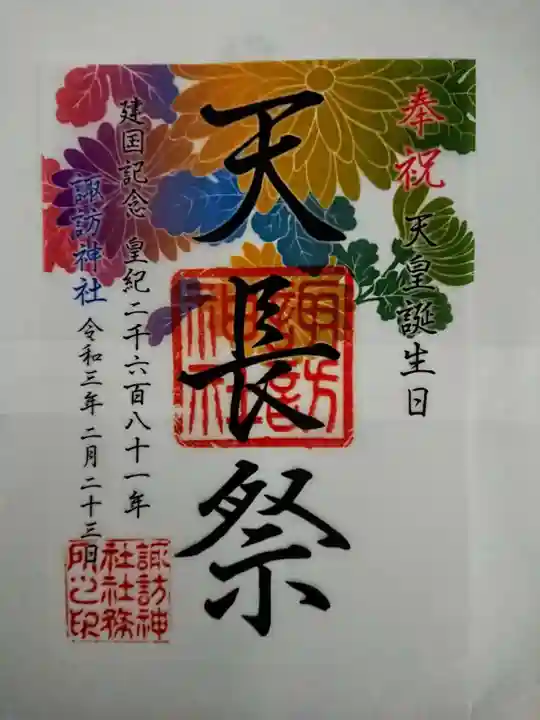 奉祝
天皇誕生日
天長祭
諏訪神社
建国記念 皇紀二千六百八十一年
諏訪神社
令和三年二月二十三日
諏訪神社社務所之印